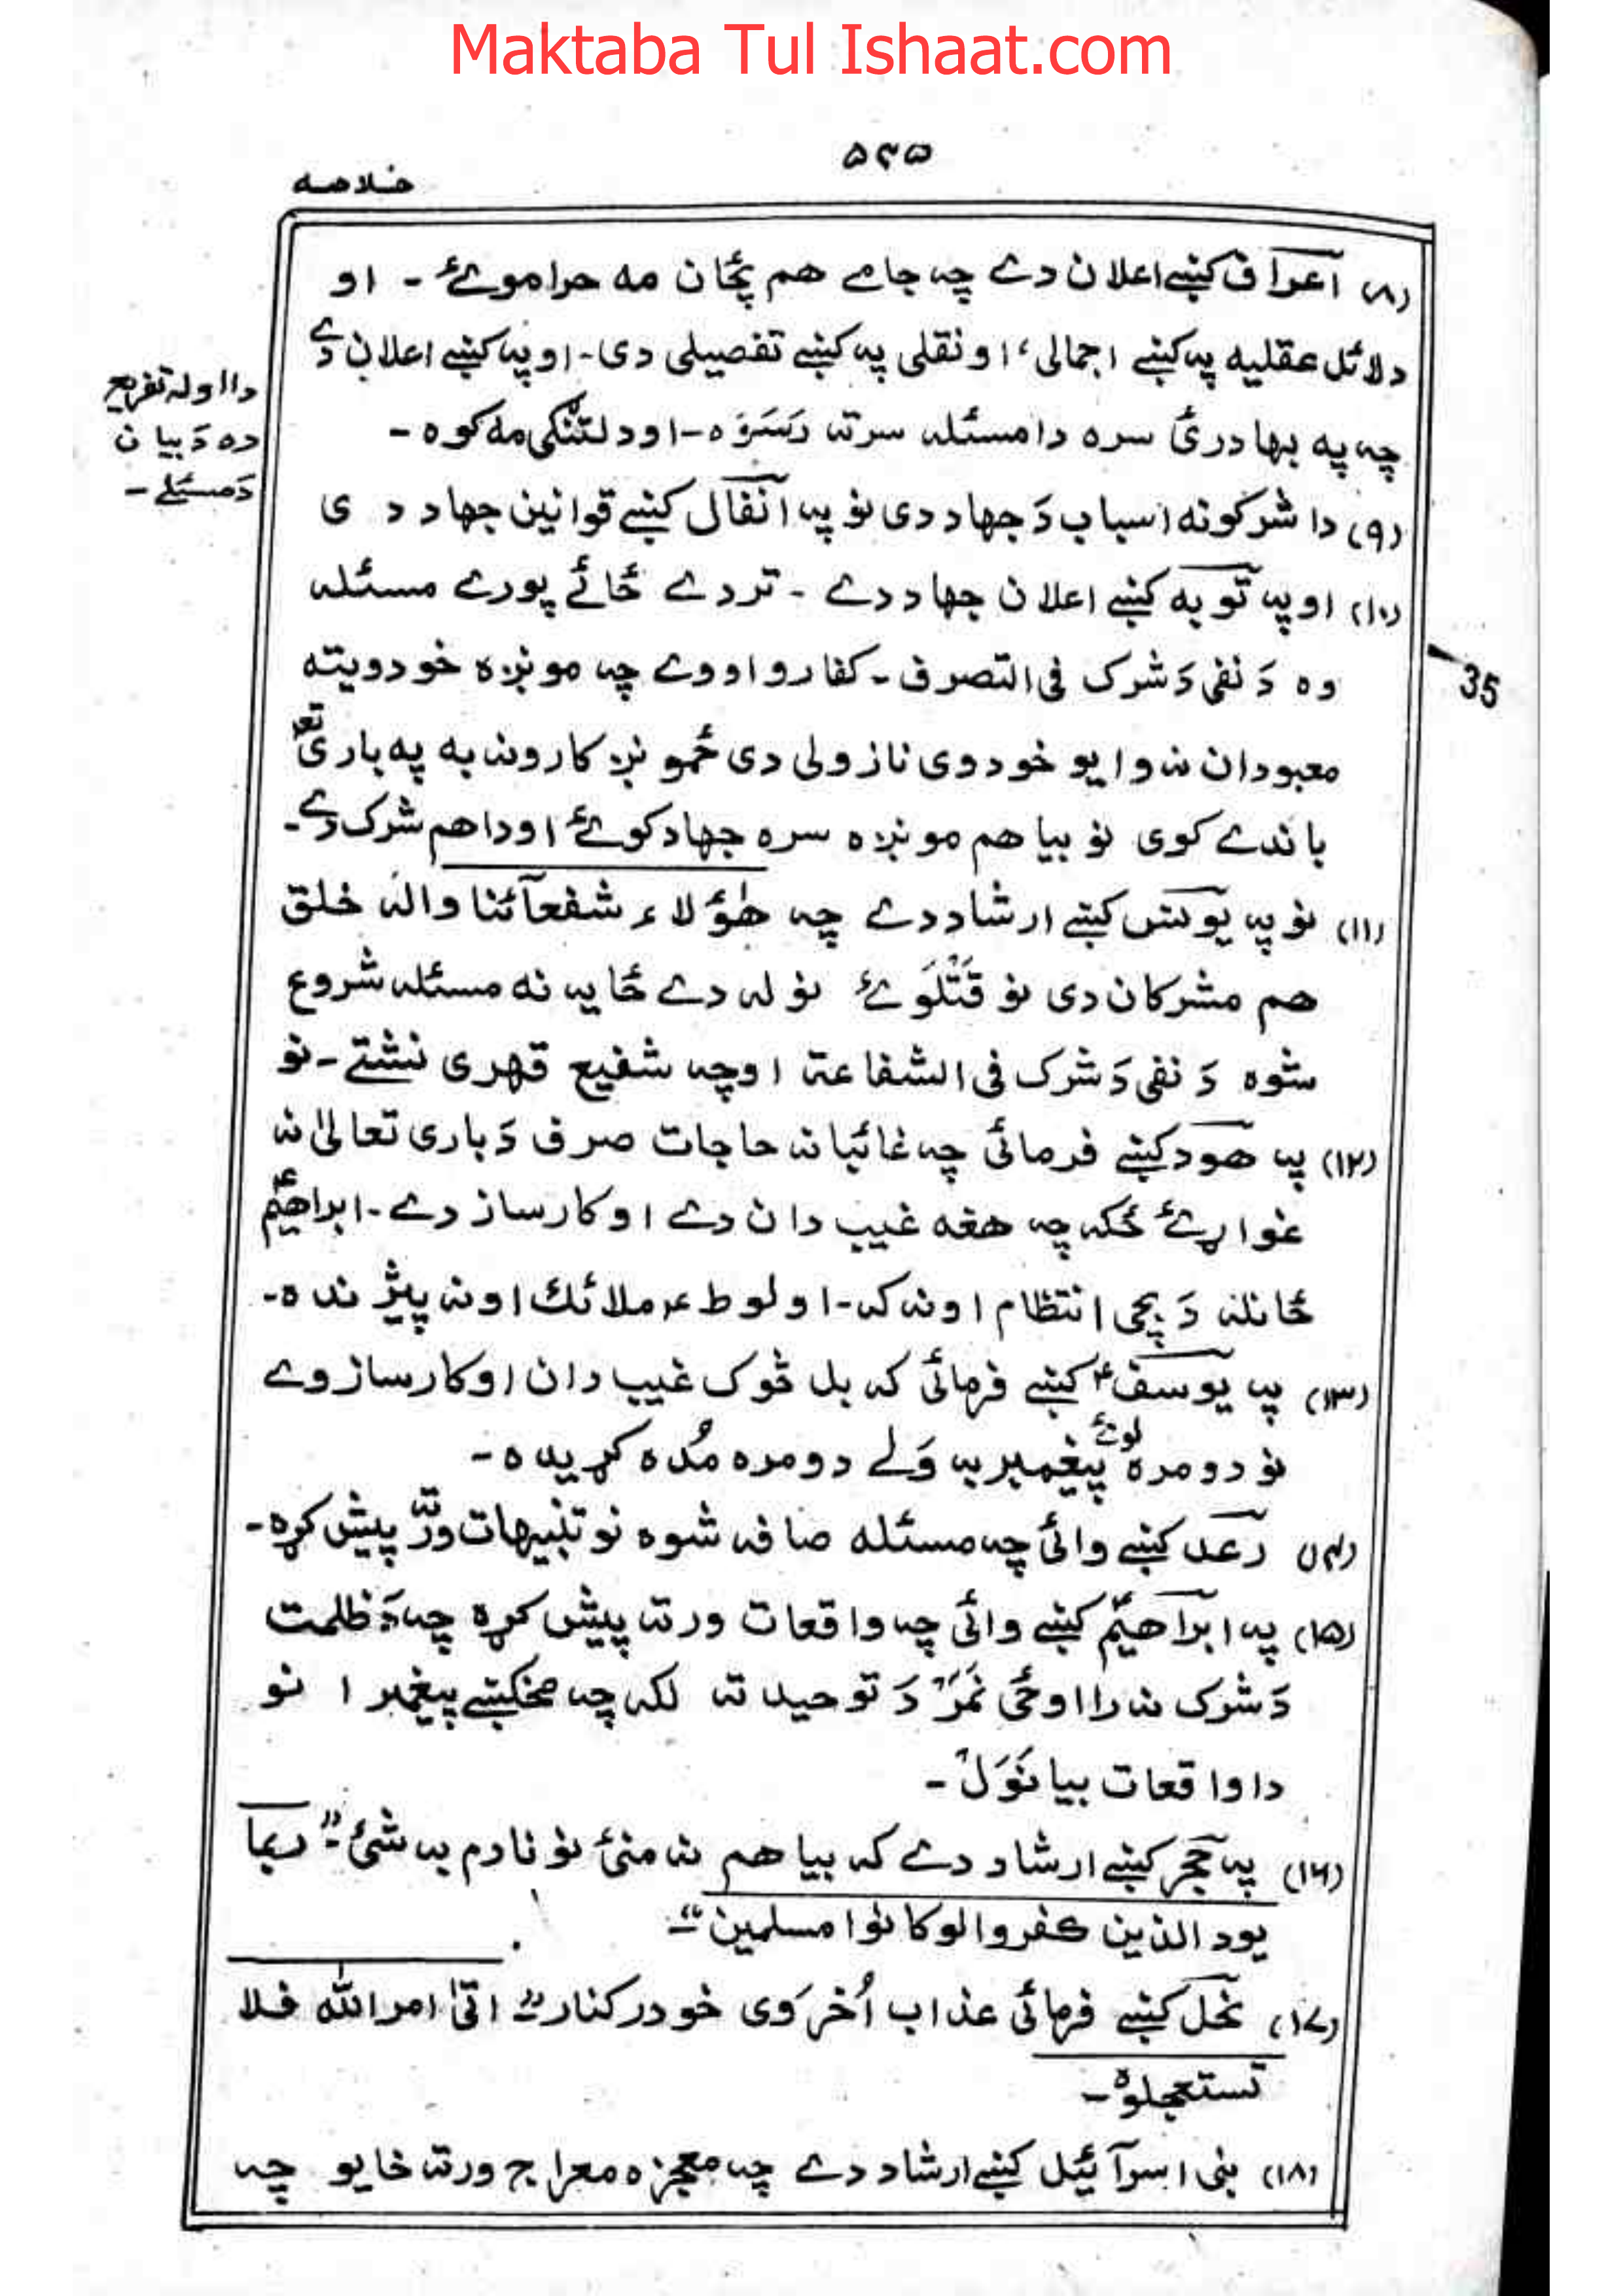 Maktaba Tul Ishaat.com
۵۳۵
خلاصه
(۸) اعراف کښے اعلان دے چہ جامے هم پځان مه حراموئ - او
دلائل عقلیه په کښے اجمالی، او نقلی په کښے تفصیلی دی - او په کښے اعلان دے
چه په بهادرئ سره دا مسئله سرته رَسَوَه - او دلتنګی مه کوه -
دا اوله تفریع
ده دَ بیان
دَ مسئلے -
(۹) دا شرکونه اسباب دَ جهاد دی نو په انفال کښے قوانین جهاد دی
(۱۰) او په توبه کښے اعلان جهاد دے - تر دے ځائے پورے مسئله
وه دَ نفی دَ شرک فی التصرف - کفارو اووے چه مونږه خو دویته
35
معبودان نه وایو خو دوی نازولی دی ځمونږ کارونه به په باری تع
باندے کوی نو بیا هم مونږه سره جهاد کوئ او دا هم شرک دے -
(۱۱) نو په یونس کښے ارشاد دے چه هٰؤلاء شفعآئنا واله خلق
هم مشرکان دی نو قَتْلَوئ نو له دے ځایه نه مسئله شروع
شوه دَ نفی دَ شرک فی الشفاعة او چه شفیع قهری نشتے - نو
(۱۲) په هود کښے فرمائی چه غائبانه حاجات صرف دَ باری تعالیٰ نه
غواړئ ځکه چه هغه غیب دان دے او کارساز دے - ابراهیمؑ
ځانله دَ بچی انتظام اونه که - او لوط ؑ ملائک اونه پیژنده -
(۱۳) په یوسفؑ کښے فرمائی که بل څوک غیب دان او کارساز وے
نو دومره لوئے پیغمبر به وَلے دومره مُده کړیده -
(۱۴) رعد کښے وائی چه مسئله صافه شوه نو تنبیهات ورته پیش کړه -
(۱۵) په ابراهیمؑ کښے وائی چه واقعات ورته پیش کړه چه دَ ظلمت
دَ شرک نه را اوځی نَمَرْ دَ توحید ته لکه چه مخکښے پیغمبرانو
دا واقعات بیانَوَلْ -
(۱۶) په حجر کښے ارشاد دے که بیا هم نه منئ نو نادم به شئ - "ربما
یود الذین کفروا لو کانوا مسلمین" -
(۱۷) نحل کښے فرمائی عذاب اُخرَوی خو درکنار - "اتیٰ امر اللّٰه فلا
تستعجلوه -
(۱۸) بنی اسرآئیل کښے ارشاد دے چه معجزه معراج ورته ښایو چه